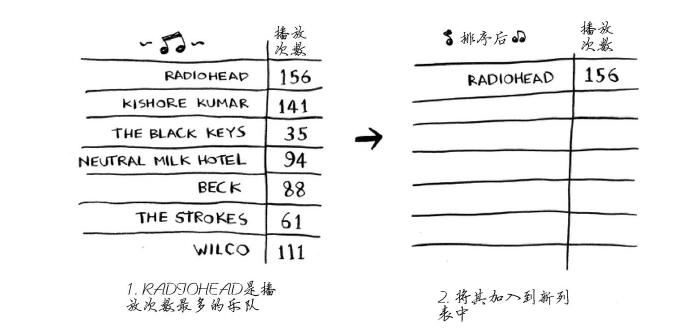 ~♫~ 播放次数
RADIOHEAD 156
KISHORE KUMAR 141
THE BLACK KEYS 35
NEUTRAL MILK HOTEL 94
BECK 88
THE STROKES 61
WILCO 111
1. RADIOHEAD是播
放次数最多的乐队
排序后 播放次数
RADIOHEAD 156
2. 将其加入到新列
表中